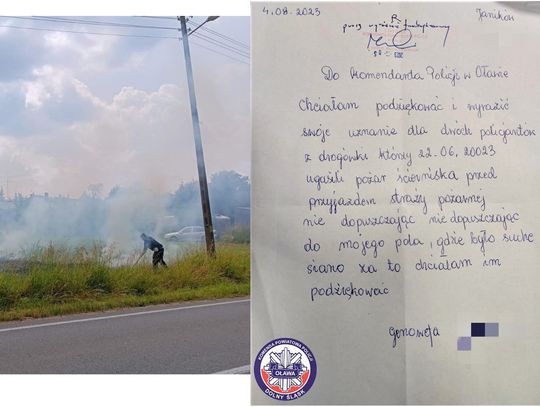 4.08.2023 Janików
Do Komendanta Policji w Oławie
Chciałam podziękować i wyrazić
swoje uznanie dla dwóch policjantów
z drogówki którzy 22.06.20023
ugasili pożar ścierniska przed
przyjazdem straży pożarnej
nie dopuszczając nie dopuszczając
do mojego pola, gdzie było suche
siano za to chciałam im
podziękować
Genowefa
KOMENDA POWIATOWA POLICJI
OŁAWA
DOLNY ŚLĄSK